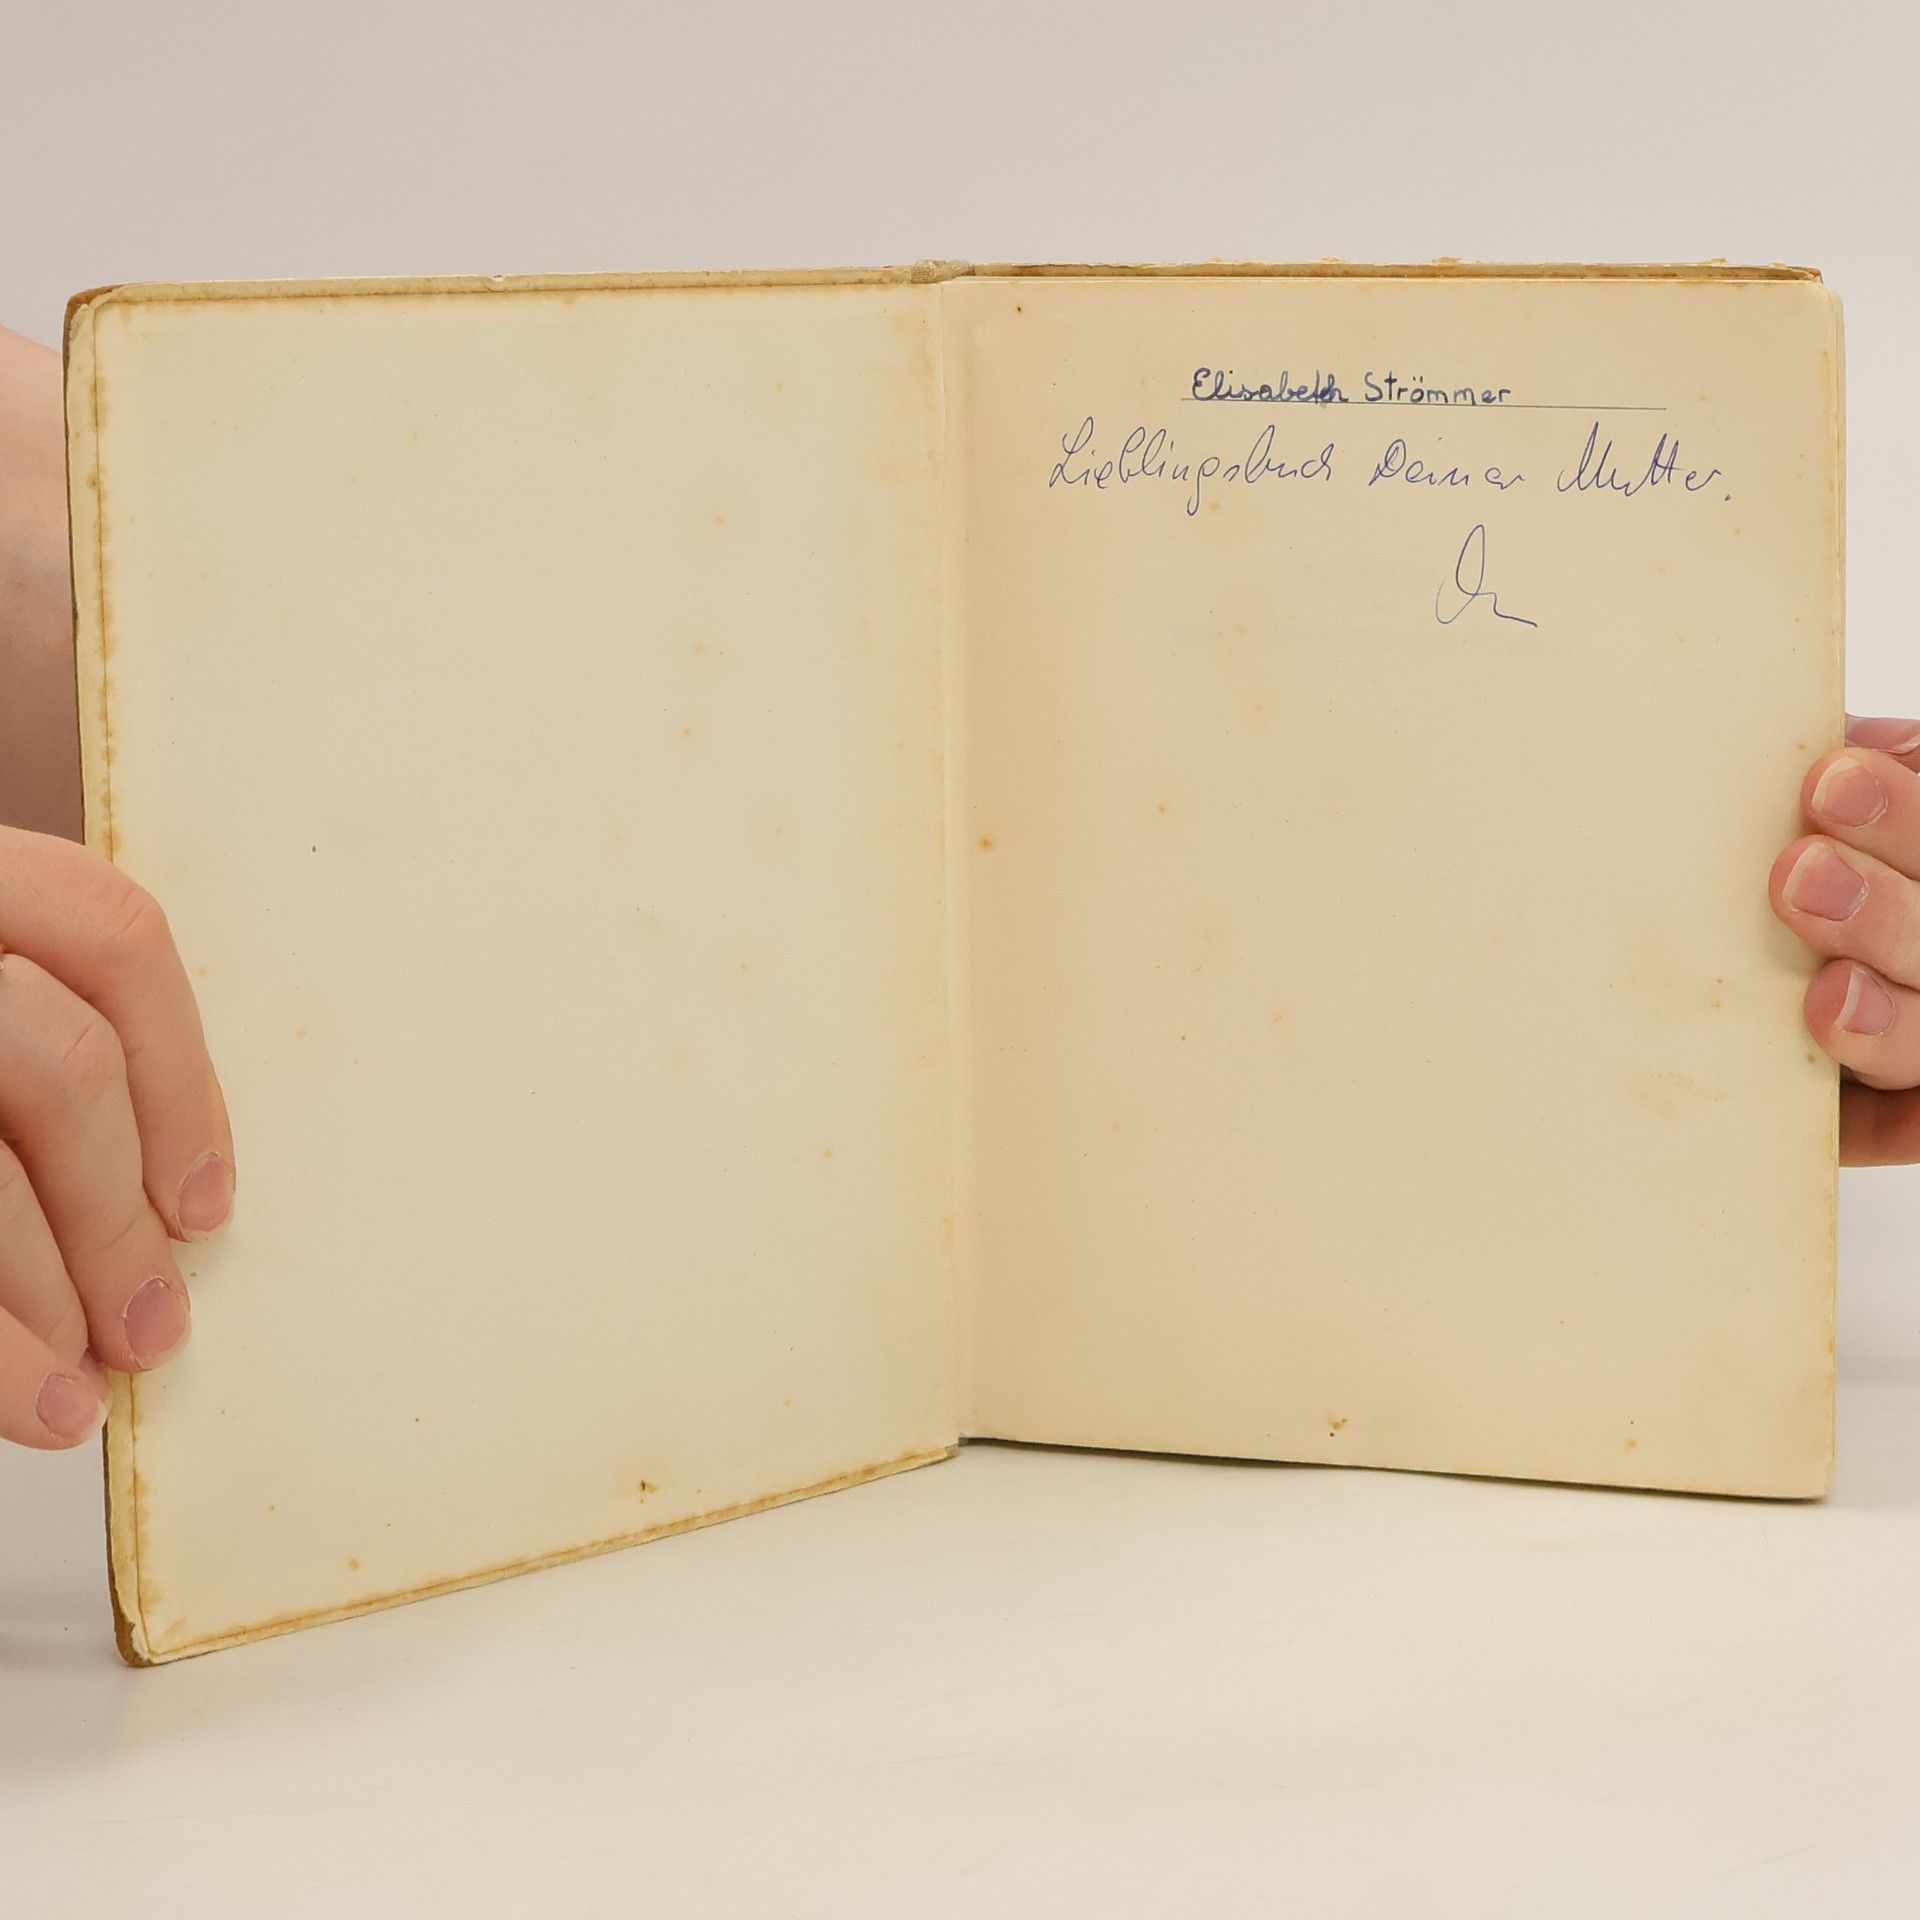 Elisabeth Strömmer
Lieblingsbuch Deiner Mutter.